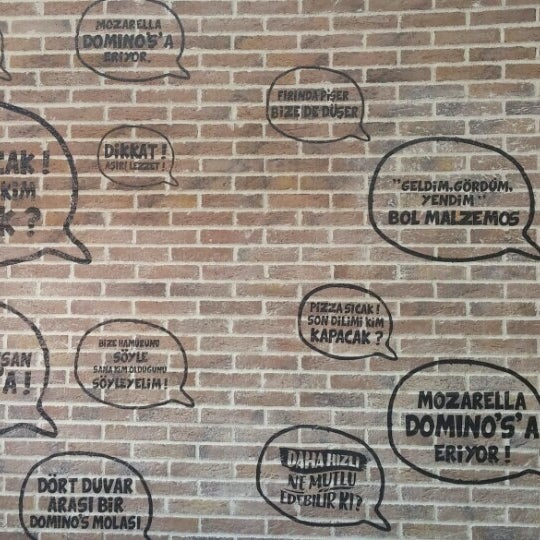 MOZARELLA
DOMINO'S'A
ERİYOR.
FIRINDA PİŞER
BİZE DE DÜŞER
DİKKAT !
AŞIRI LEZZET !
CAK !
KİM
K ?
"GELDİM, GÖRDÜM,
YENDİM"
BOL MALZEMOS
PIZZA SICAK !
SON DİLİMİ KİM
KAPACAK ?
SAN
A !
BİZE HAMURUNU
SÖYLE
SANA KİM OLDUĞUNU
SÖYLEYELİM !
MOZARELLA
DOMINO'S'A
ERİYOR !
DAHA HIZLI
NE MUTLU
EDEBİLİR Kİ?
DÖRT DUVAR
ARASI BİR
DOMINO'S MOLASI